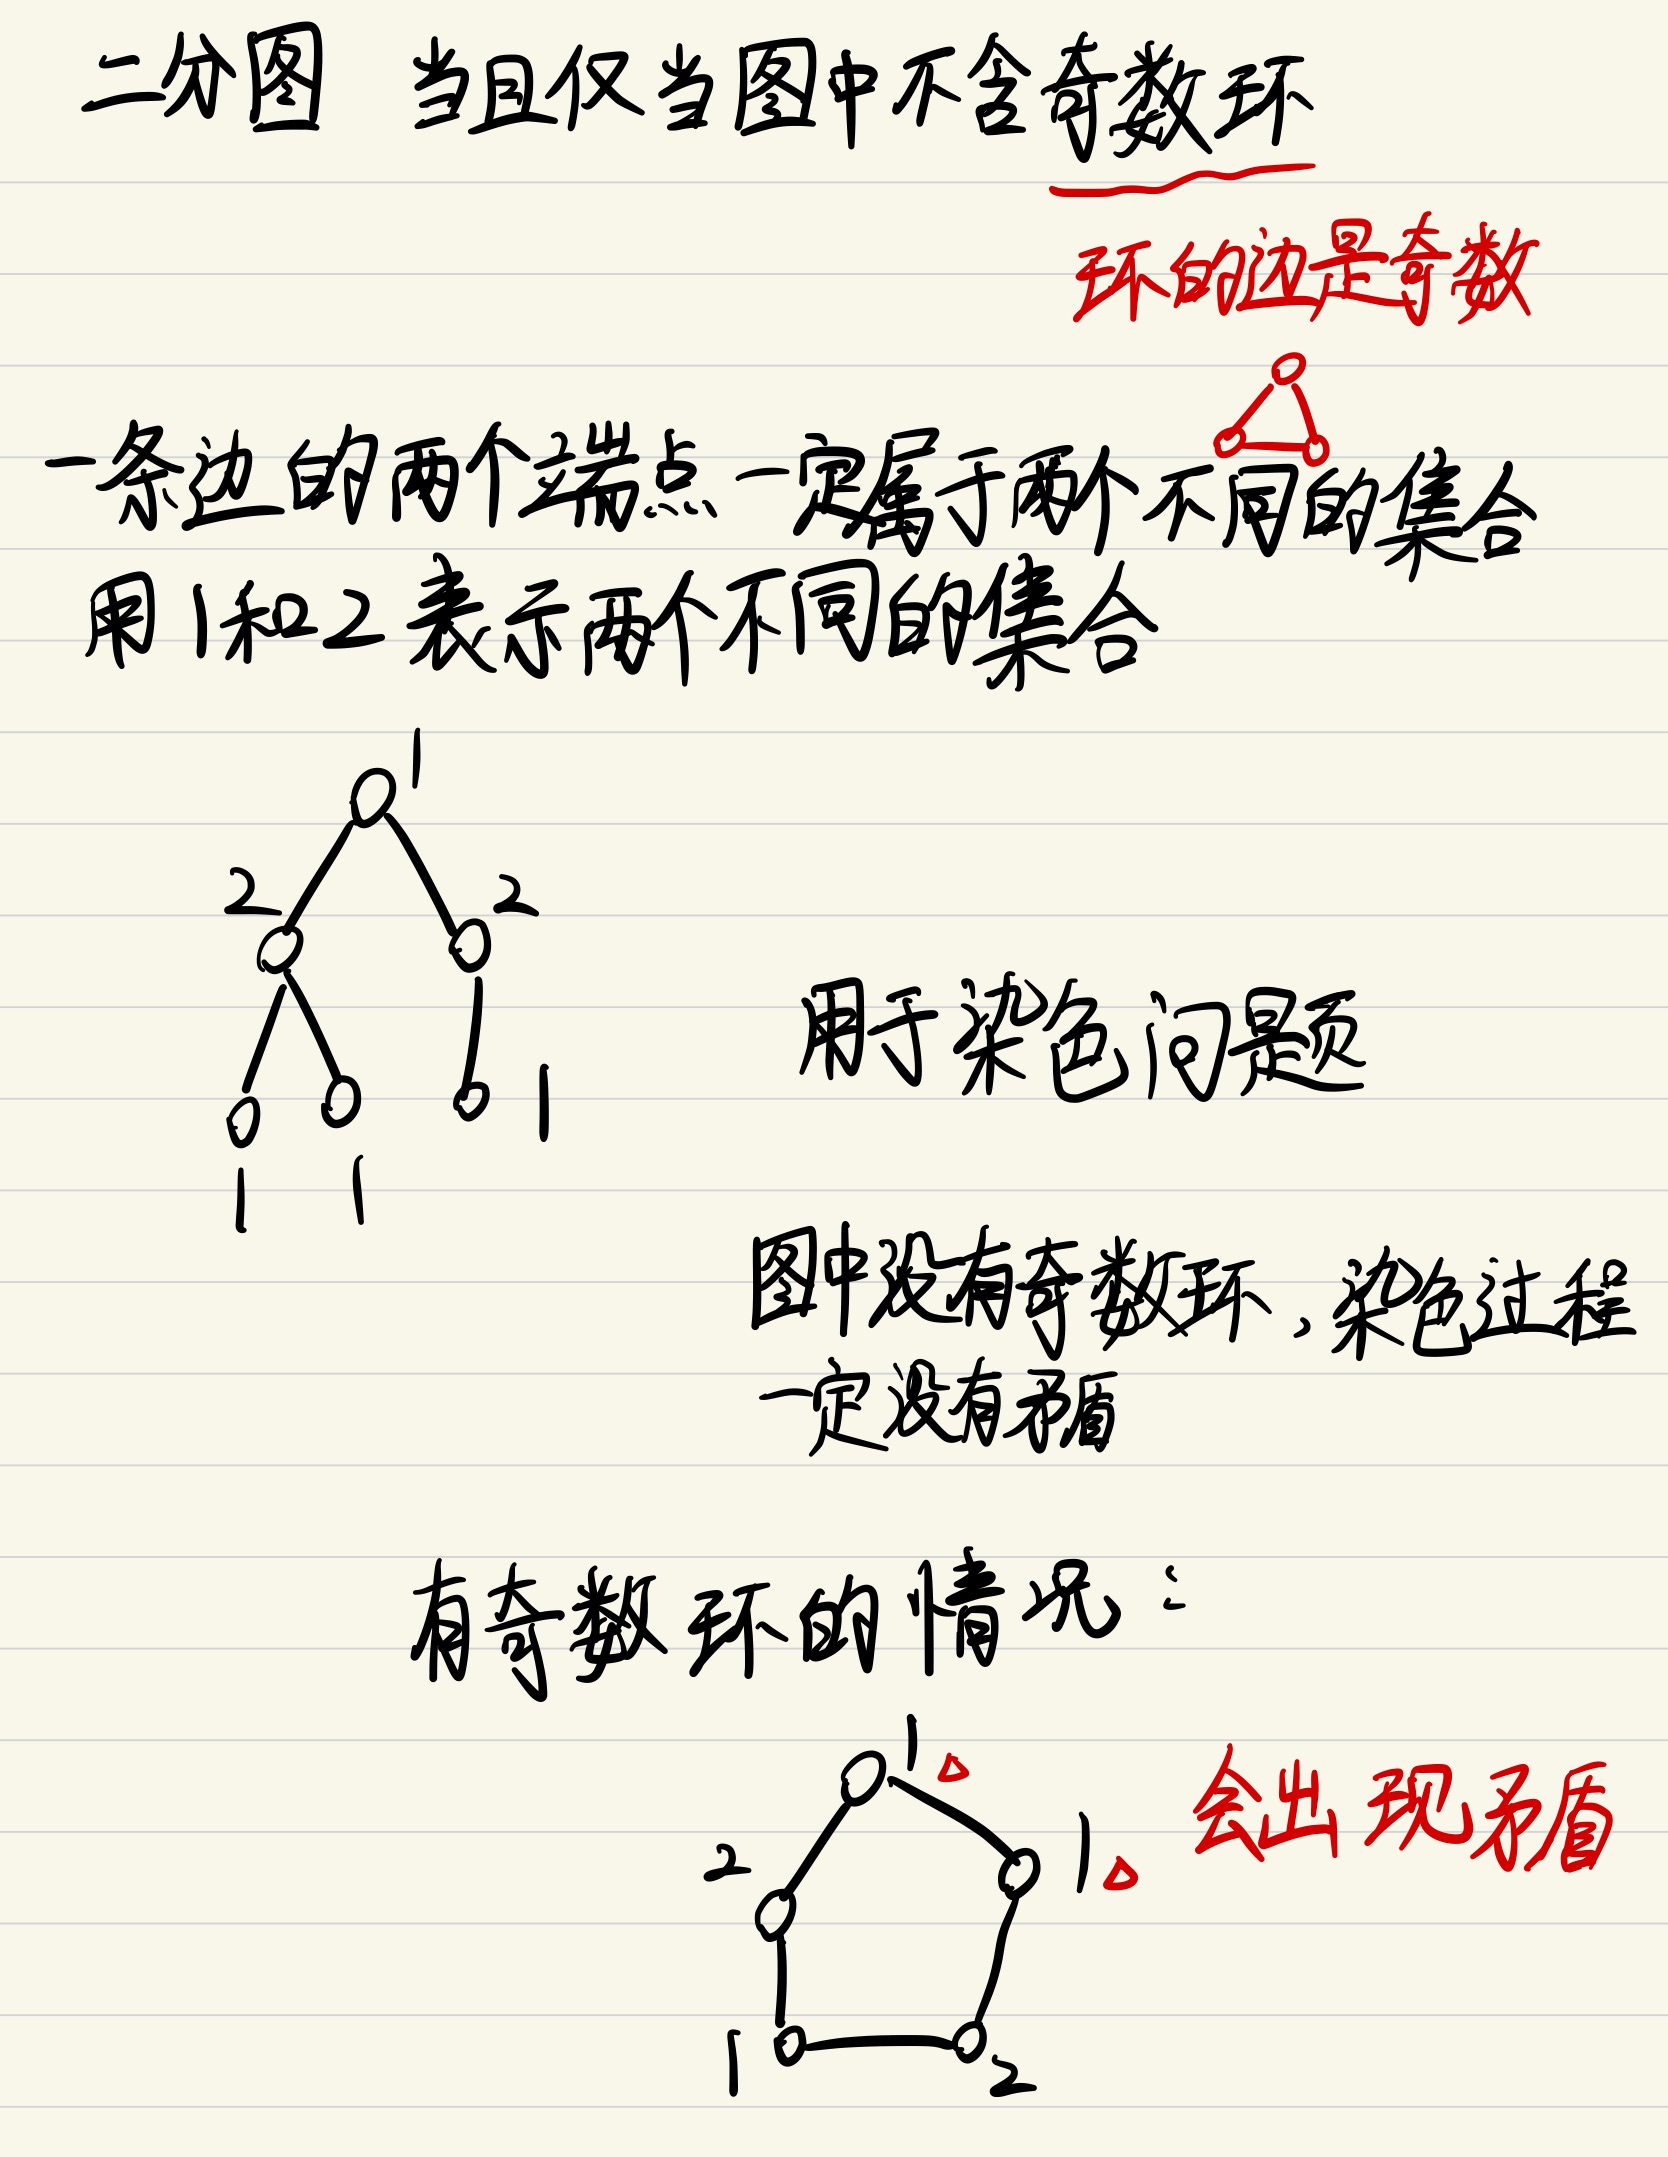 二分图 当且仅当图中不含奇数环
环的边是奇数
一条边的两个端点一定属于两个不同的集合
用1和2表示两个不同的集合
1
2 2
用于染色问题
1
1 1
图中没有奇数环，染色过程
一定没有矛盾
有奇数环的情况：
1
会出现矛盾
2 1
1 2